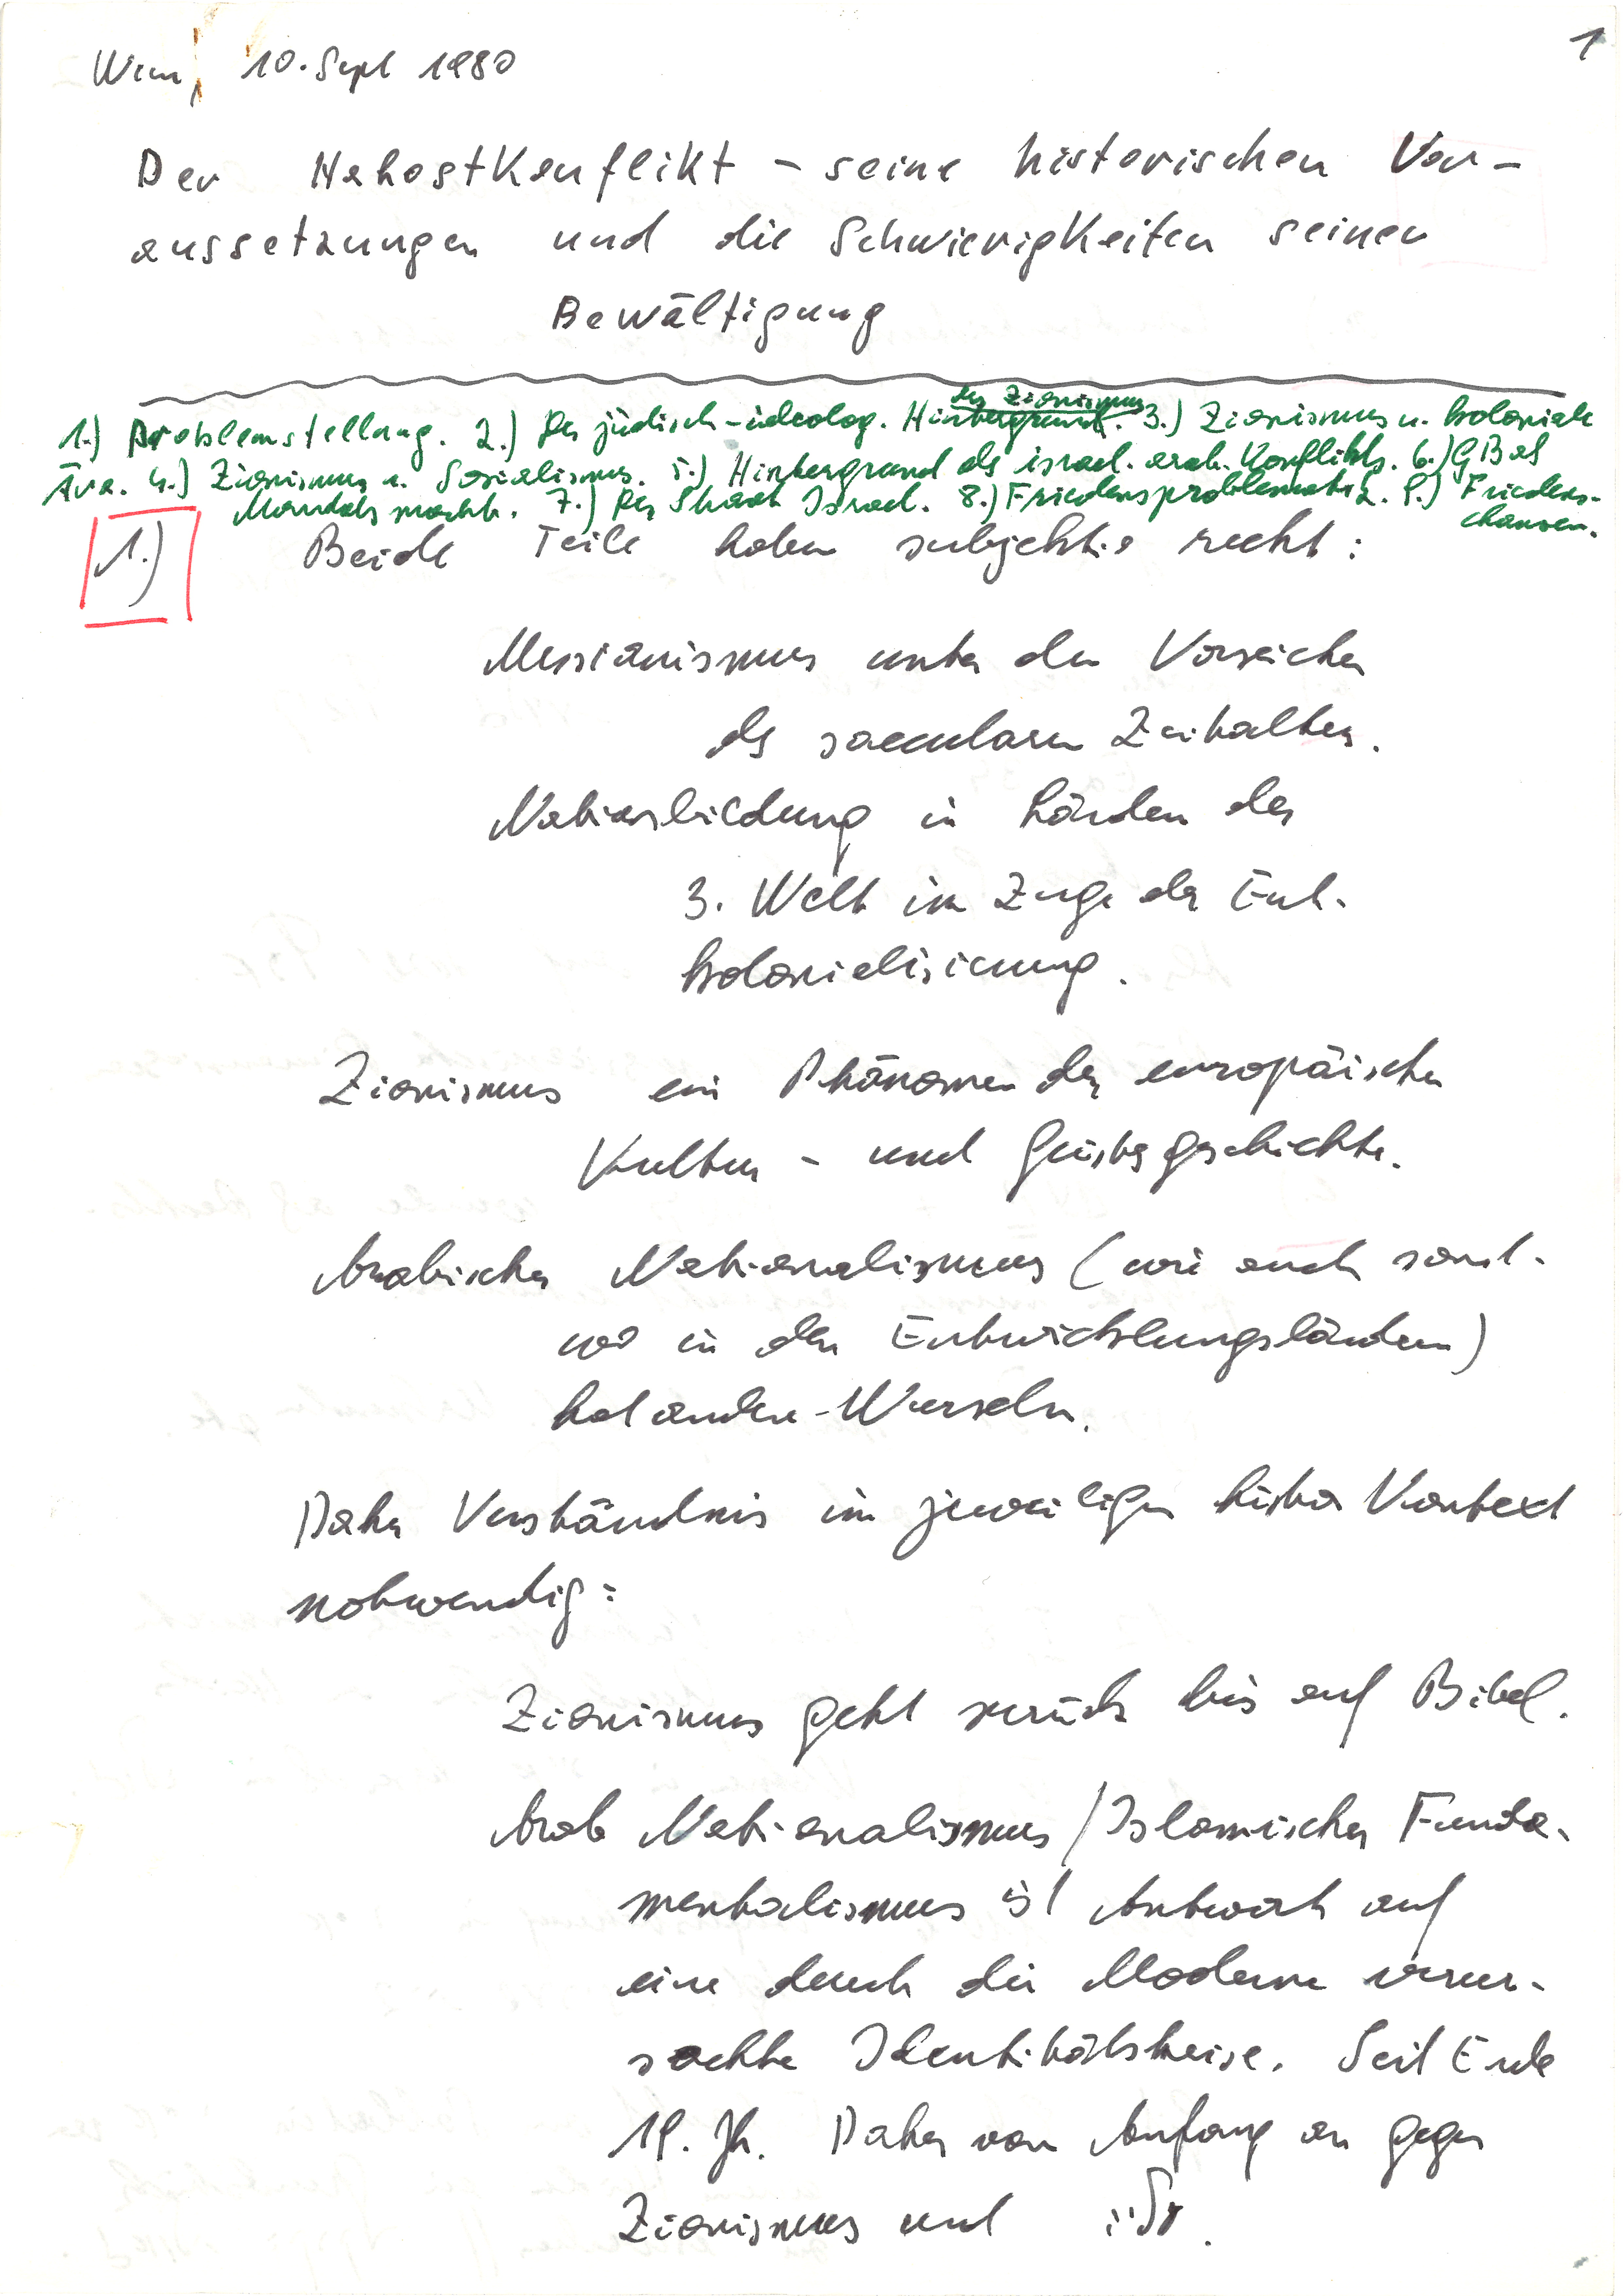 Wien, 10. Sept 1980
1
Der Nahostkonflikt – seine historischen Vor-
aussetzungen und die Schwierigkeiten seiner
Bewältigung
des Zionismus
1.) Problemstellung. 2.) Der jüdisch-ideolog. Hintergrund. 3.) Zionismus u. koloniale
Ära. 4.) Zionismus u. Sozialismus. 5.) Hintergrund des israel. arab. Konflikts. 6.) GB als
Mandatsmacht. 7.) Der Staat Israel. 8.) Friedensproblematik. 9.) Friedens-
chancen.
1.) Beide Teile haben subjektiv recht:
Messianismus unter den Vorzeichen
des saecularen Zeitalters.
Nationsbildung in Ländern der
3. Welt im Zuge der Ent-
kolonialisierung.
Zionismus ein Phänomen der europäischen
Kultur- und Geistesgeschichte.
Arabischer Nationalismus (wie auch sonst-
wo in den Entwicklungsländern)
hat andere Wurzeln.
Daher Verständnis im jeweiligen histor Kontext
notwendig:
Zionismus geht zurück bis auf Bibel.
Arab Nationalismus / Islamischer Funda-
mentalismus ist Antwort auf
eine durch die Moderne verur-
sachte Identitätskrise. Seit Ende
19. Jh. Daher von Anfang an gegen
Zionismus und